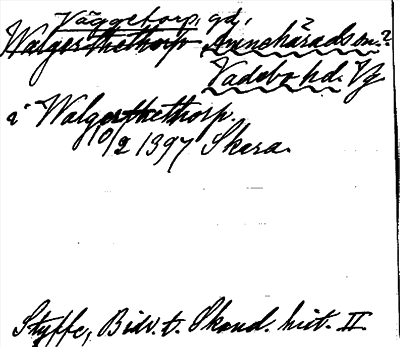 Väggetorp, gd,
Walgerthethorp Amnehärads sn.?
Vadsbo hd. Vg
a Walgerthethorp.
10/2 1397 Skara.
Styffe, Bidr. t. Skand. hist. II